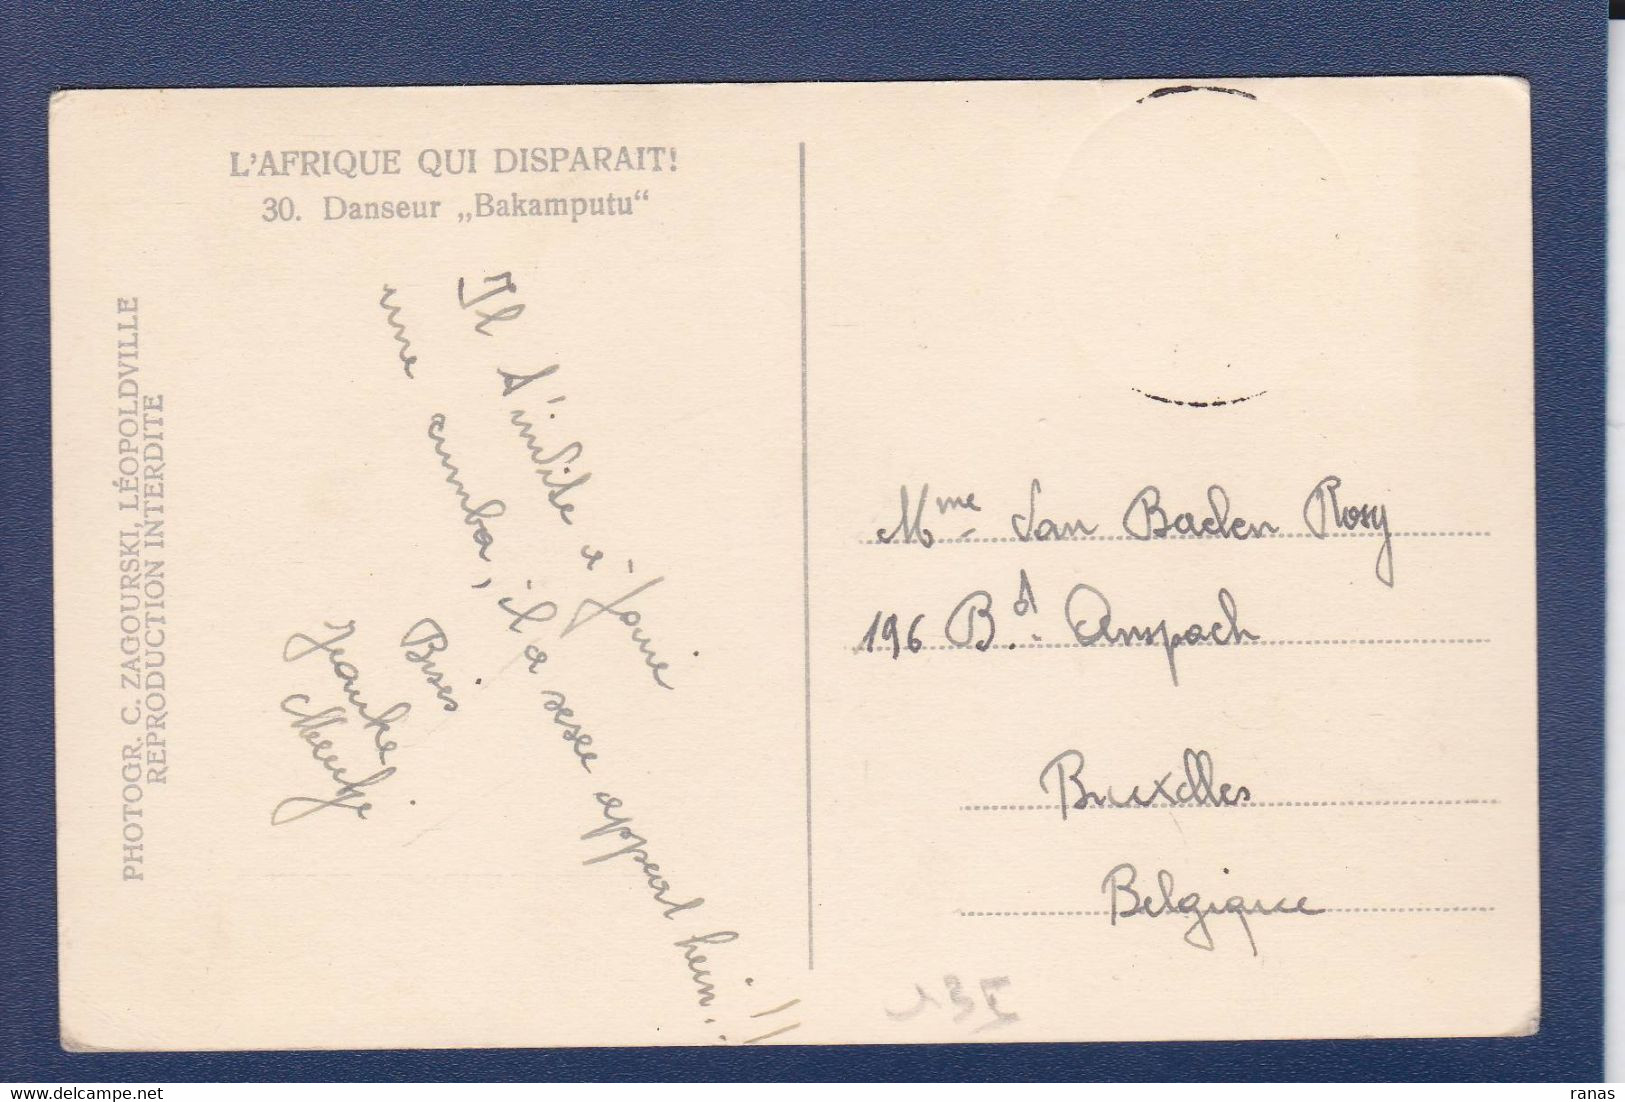 L'AFRIQUE QUI DISPARAIT!
30. Danseur „Bakamputu“
PHOTOGR. C. ZAGOURSKI, LÉOPOLDVILLE
REPRODUCTION INTERDITE
Il t'invite à faire
une rumba, il a sexe appeal hein!!!
Bises
Mme Van Baden Rosy
196 Bd. Anspach
Bruxelles
Belgique
ranas